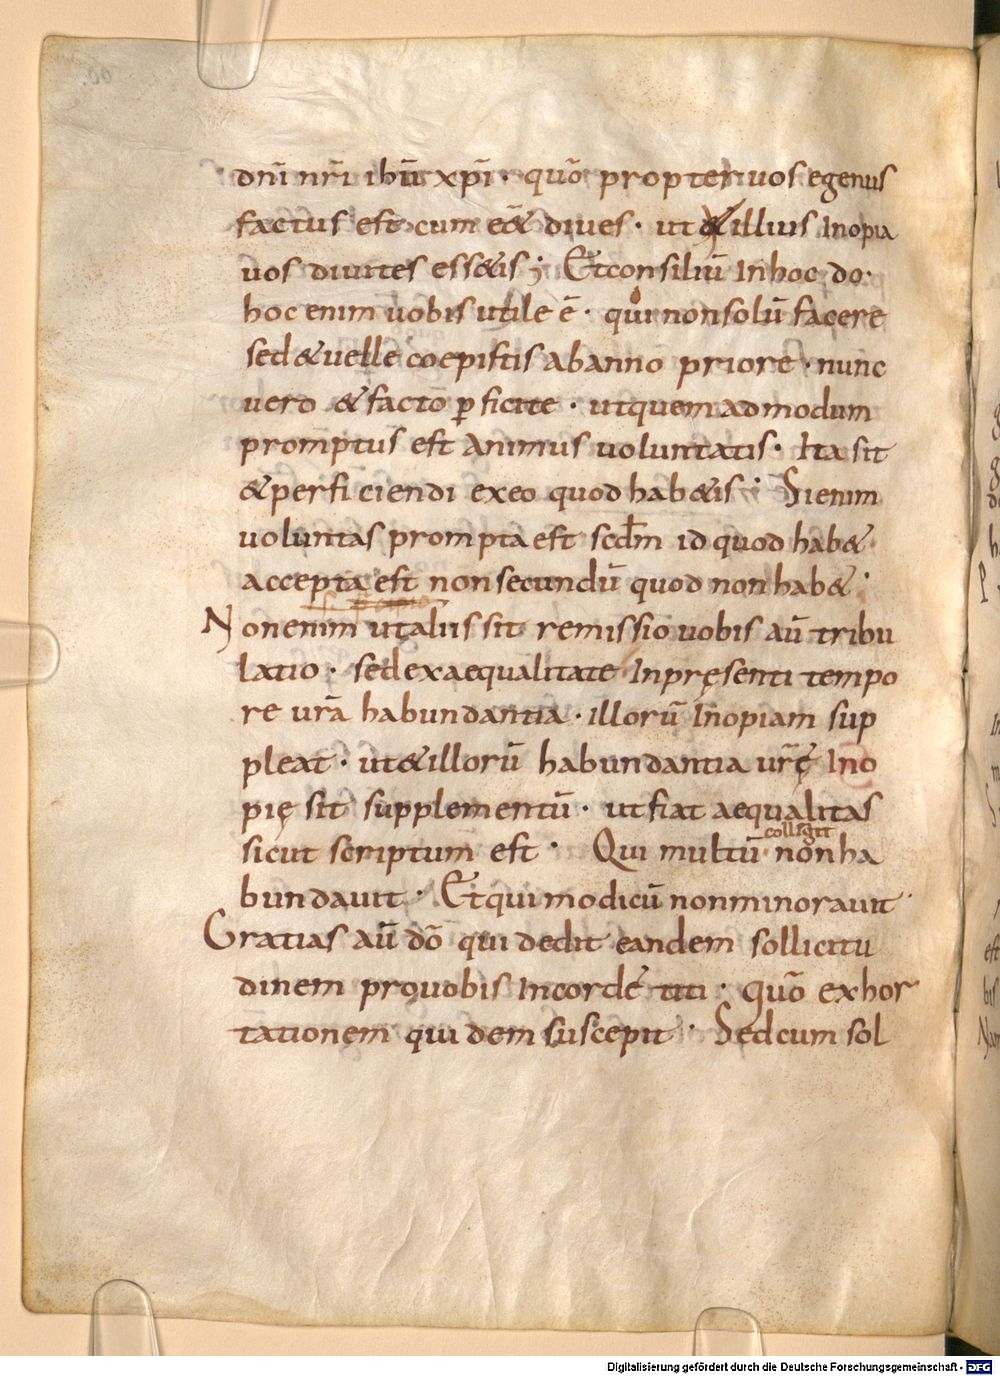 dn̄i nr̄i ihū xp̄i · quō propter uos egenus
factus est cum eēt diues · ut & illius Inopia
uos diuites ess&is ; Et consiliū In hoc do ·
hoc enim uobis utile ē · qui non solū facere
sed & uelle coepistis ab anno priore · nunc
uero & facto ꝑficite · ut quem ad modum
promptus est animus uoluntatis · Ita sit
& perficiendi ex eo quod hab&is ; Si enim
uoluntas prompta est scd̄m id quod hab& ·
accepta est non secundū quod non hab& ;
Non enim ut aliis sit remissio uobis aū tribu
latio · sed ex aequalitate In pręsenti tempo
re ur̄a habundantia · illorū Inopiam sup
pleat · ut & illorū habundantia ur̄ę Ino
pię sit supplementū · ut fiat aequalitas
collegit
sicut scriptum est · Qui multū non ha
bundauit · Et qui modicū non minorauit ·
Gratias aū dō qui dedit eandem sollicitu
dinem pro uobis In corde titi · quō exhor
tationem quidem suscepit · Sed cum sol
Digitalisierung gefördert durch die Deutsche Forschungsgemeinschaft - DFG